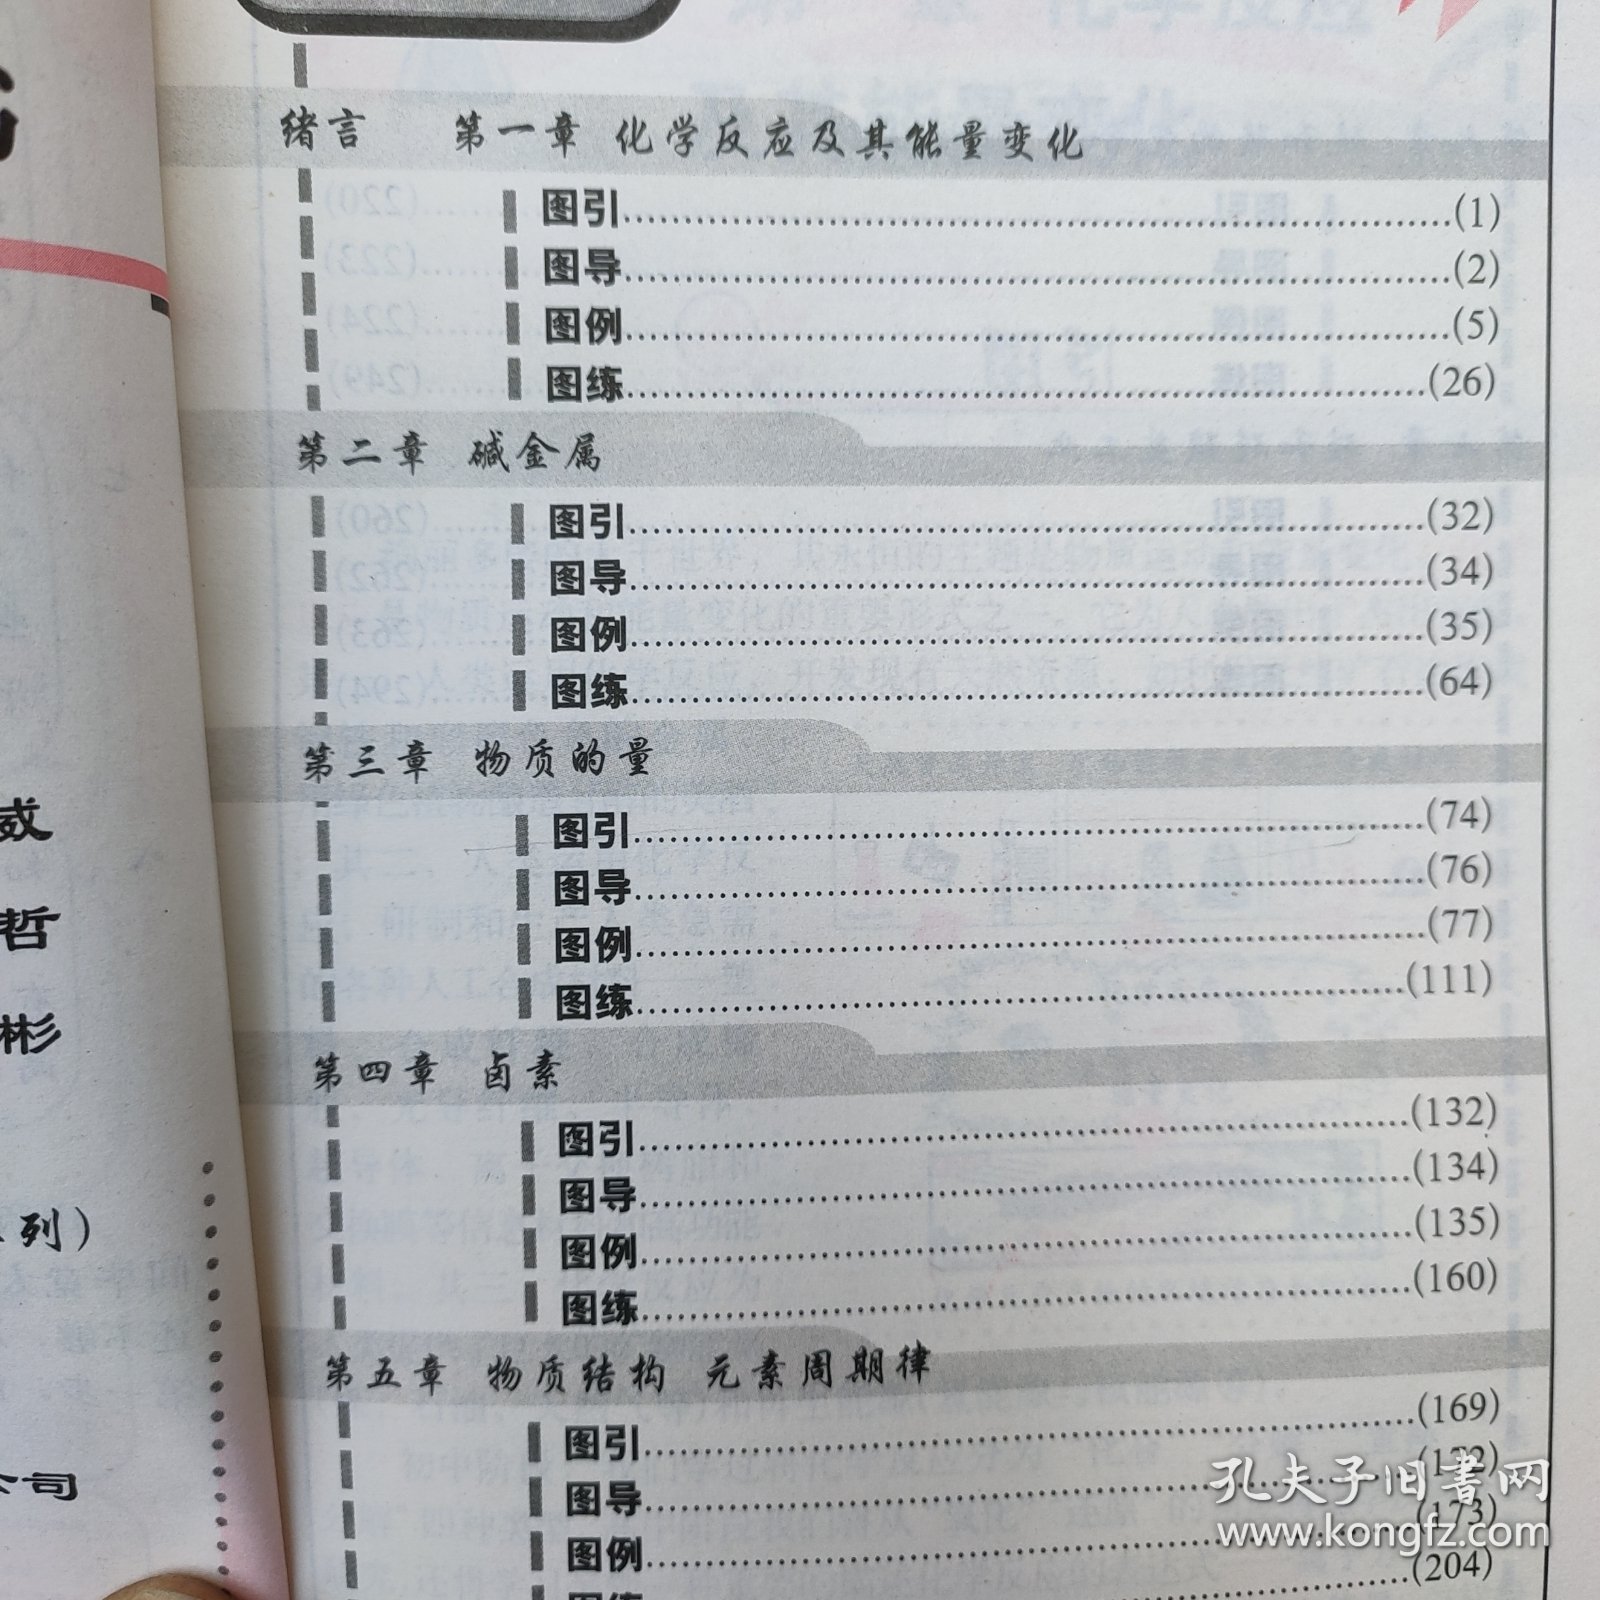 绪言 第一章 化学反应及其能量变化
图引(1)
图导(2)
图例(5)
图练(26)
第二章 碱金属
图引(32)
图导(34)
图例(35)
图练(64)
第三章 物质的量
图引(74)
图导(76)
图例(77)
图练(111)
第四章 卤素
图引(132)
图导(134)
图例(135)
图练(160)
第五章 物质结构 元素周期律
图引(169)
图导
图例(173)
(204)
哲
彬
列)
公司
孔夫子旧书网
www.kongfz.com